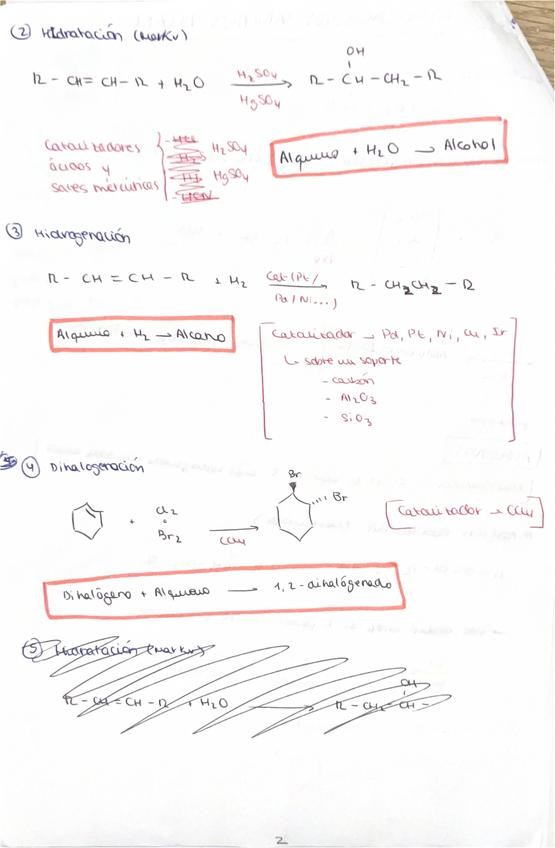 ② Hidratación (Markv)
OH
R - CH = CH - R + H₂O H₂SO₄ HgSO₄ → R - CH - CH₂ - R
Catalizadores H₂SO₄
ácidos y
sales mercúricas HgSO₄
Alqueno + H₂O → Alcohol
③ Hidrogenación
R - CH = CH - R + H₂ Cat (Pt/ Pd/Ni...) → R - CH₂CH₂ - R
Alqueno + H₂ → Alcano
Catalizador → Pd, Pt, Ni, Cu, Ir
↳ sobre un soporte
- carbón
- Al₂O₃
- SiO₃
④ Dihalogenación
Br
Br
+ Cl₂ o Br₂ CCl₄ →
[Catalizador → CCl₄]
Dihalógeno + Alqueno → 1,2-dihalógenado
⑤ Hidratación (Markv)
OH
R - CH = CH - R + H₂O → R - CH₂ - CH -
2